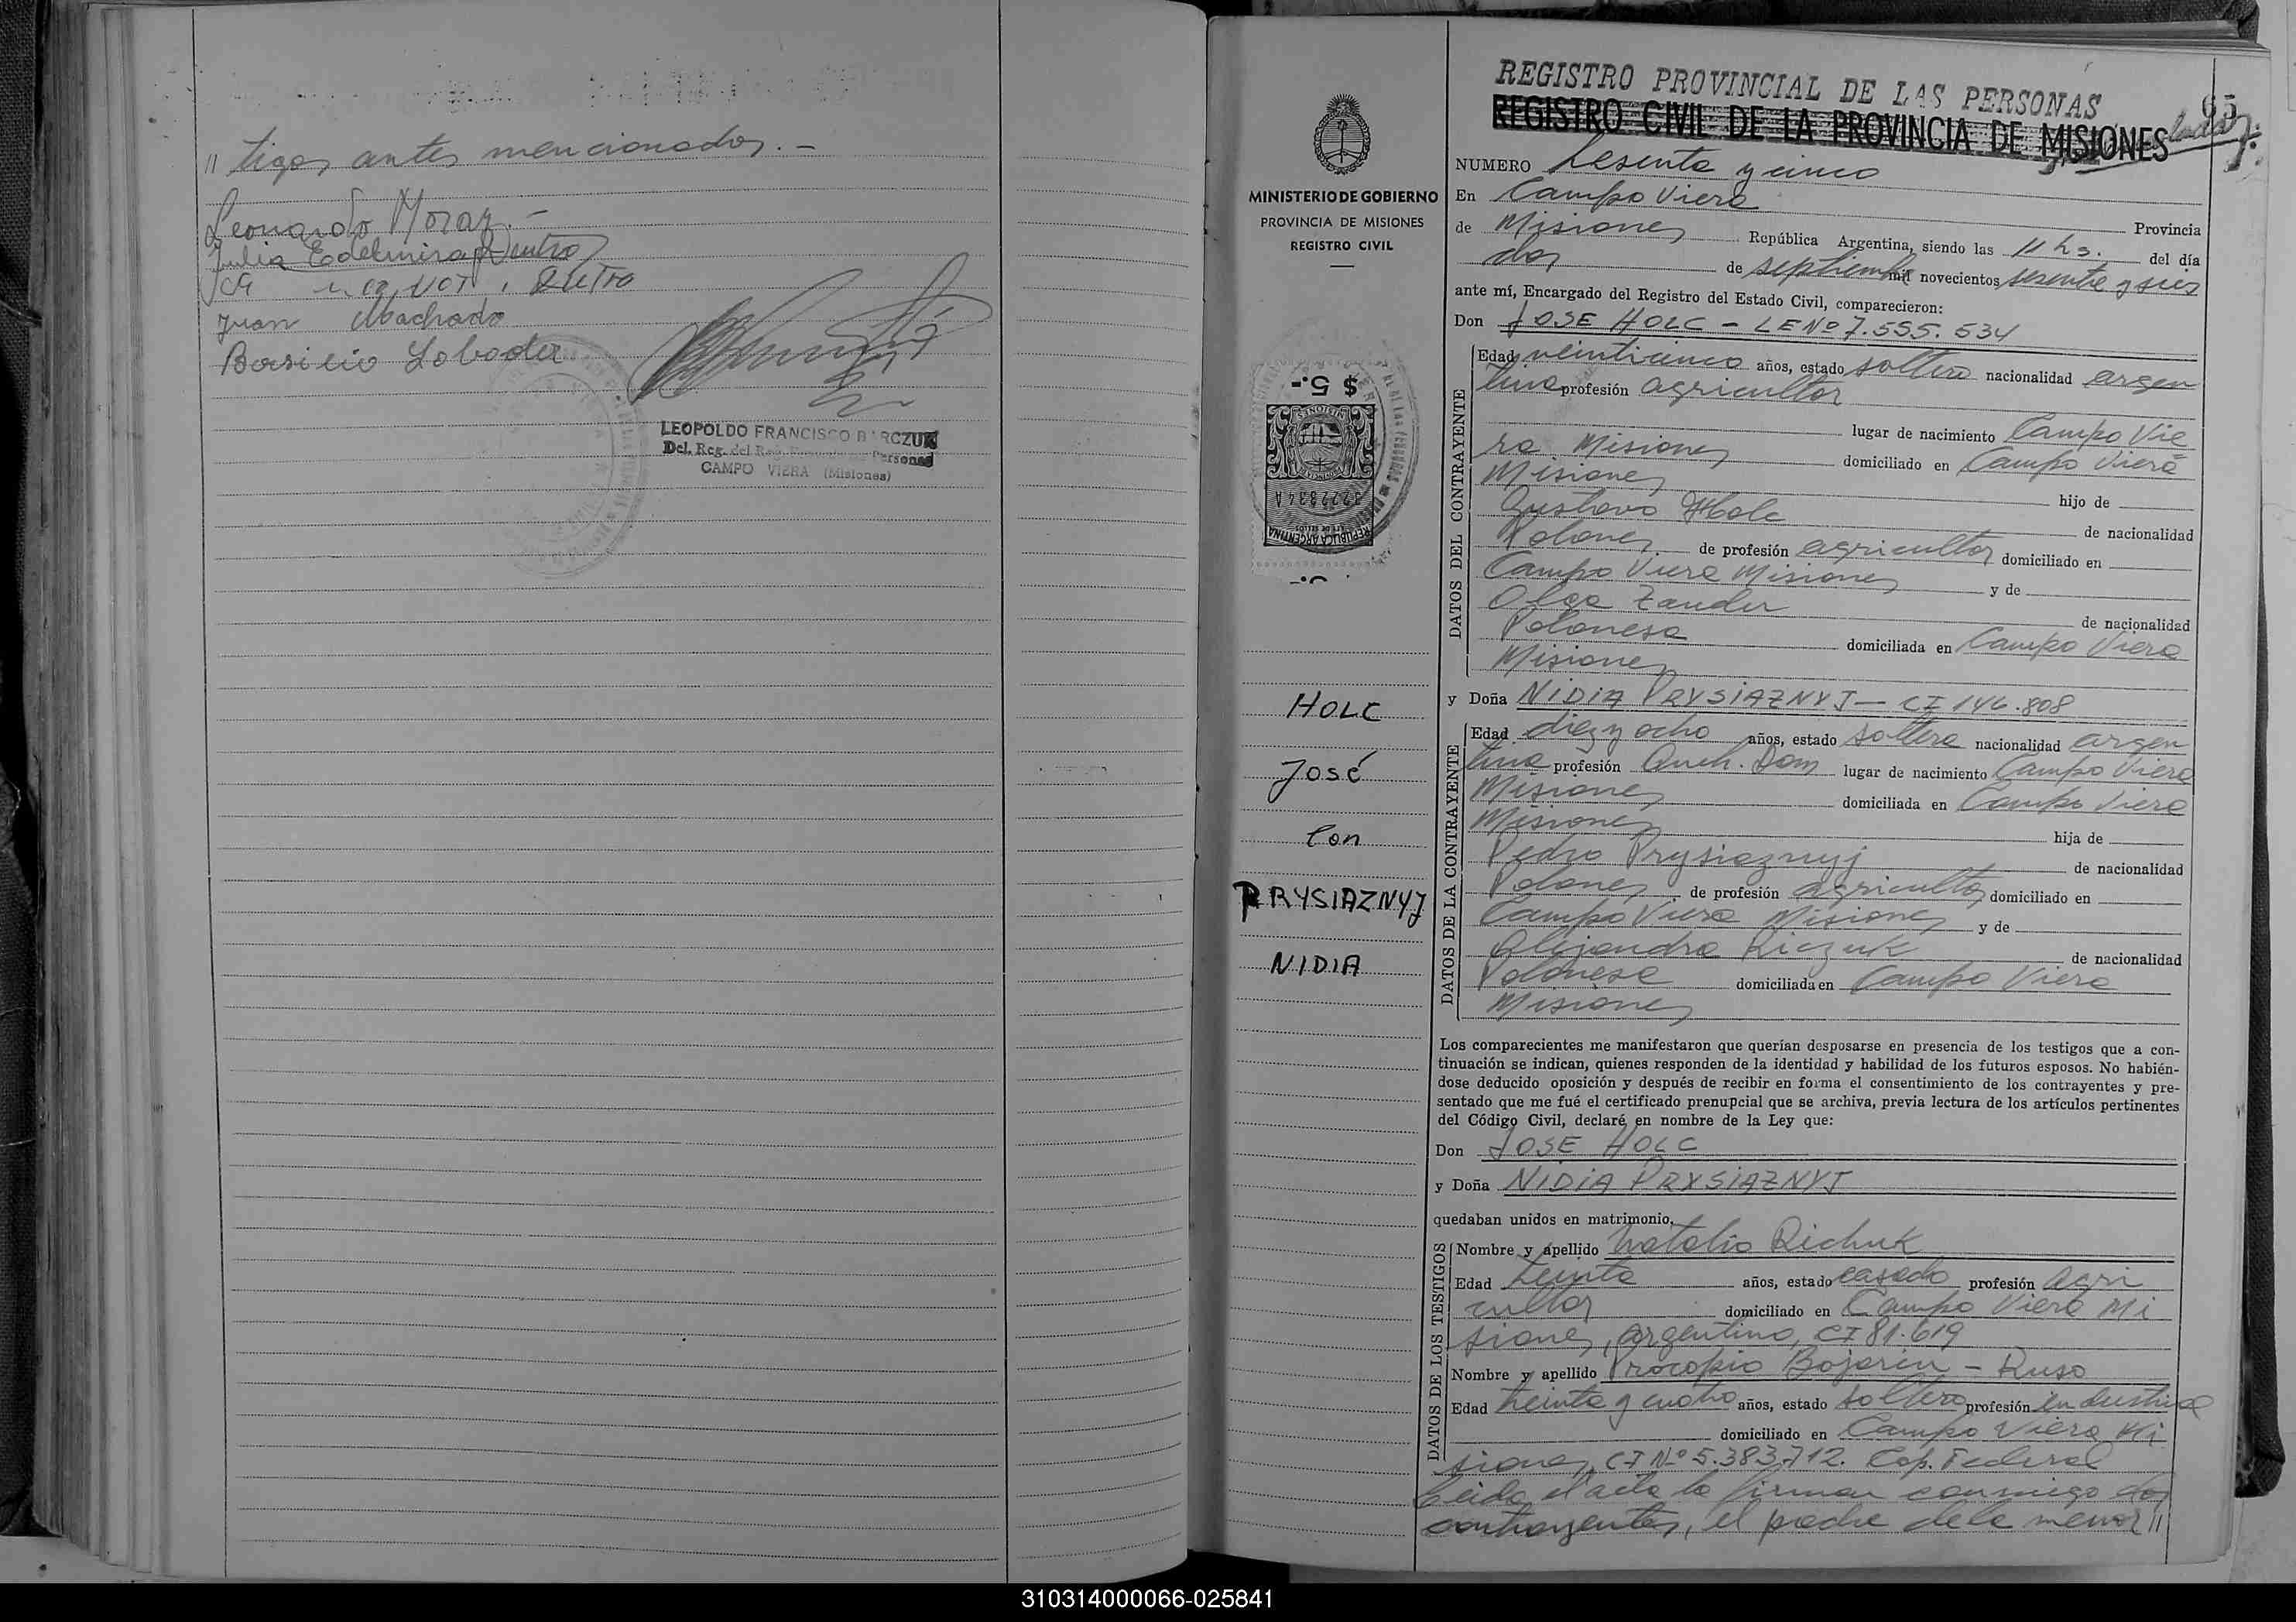 // tigos antes mencionados. -
Leonardo Moraz. -
Julia Edelmira Dutra
Juan Machado
Basilio Loboda
LEOPOLDO FRANCISCO BARCZUK
Del. Reg. del Reg. Personas
CAMPO VIERA (Misiones)
MINISTERIO DE GOBIERNO
PROVINCIA DE MISIONES
REGISTRO CIVIL
$ 5.-
MISIONES
322283 4 A
REPUBLICA ARGENTINA
HOLC
José
Con
PRYSIAZNYJ
NIDIA
REGISTRO PROVINCIAL DE LAS PERSONAS
65
REGISTRO CIVIL DE LA PROVINCIA DE MISIONES
NUMERO Sesenta y cinco
En Campo Viera Provincia
de Misiones República Argentina, siendo las 11 hs. del día
dos de septiembre mil novecientos sesenta y seis
ante mí, Encargado del Registro del Estado Civil, comparecieron:
Don JOSE HOLC - LE Nº 7.555.534
DATOS DEL CONTRAYENTE
Edad veinticinco años, estado soltero nacionalidad argen
tina profesión agricultor
lugar de nacimiento Campo Vie
ra Misiones domiciliado en Campo Viera
Misiones hijo de
Gustavo Holc de nacionalidad
Polones de profesión agricultor domiciliado en
Campo Viera Misiones y de
Olga Zander de nacionalidad
Polonesa domiciliada en Campo Viera
Misiones
y Doña NIDIA PRYSIAZNYJ - CI 146.808
DATOS DE LA CONTRAYENTE
Edad diez y ocho años, estado soltera nacionalidad argen
tina profesión Queh. Dom lugar de nacimiento Campo Viera
Misiones domiciliada en Campo Viera
Misiones hija de
Pedro Prysiaznyj de nacionalidad
Polones de profesión agricultor domiciliado en
Campo Viera Misiones y de
Alejandra Riczuk de nacionalidad
Polonesa domiciliada en Campo Viera
Misiones
Los comparecientes me manifestaron que querían desposarse en presencia de los testigos que a con-
tinuación se indican, quienes responden de la identidad y habilidad de los futuros esposos. No habién-
dose deducido oposición y después de recibir en forma el consentimiento de los contrayentes y pre-
sentado que me fué el certificado prenupcial que se archiva, previa lectura de los artículos pertinentes
del Código Civil, declaré en nombre de la Ley que:
Don JOSE HOLC
y Doña NIDIA PRYSIAZNYJ
quedaban unidos en matrimonio.
DATOS DE LOS TESTIGOS
Nombre y apellido Natalio Richuk
Edad treinta años, estado casado profesión agri
cultor domiciliado en Campo Viera Mi
siones, argentino, CI 81.619
Nombre y apellido Procopio Bojarin - Ruso
Edad treinta y cuatro años, estado soltero profesión industrial
domiciliado en Campo Viera Mi
siones, CI Nº 5.383.712. Cap. Federal
Leida el acta la firman conmigo los
contrayentes, el padre de la menor //
310314000066-025841